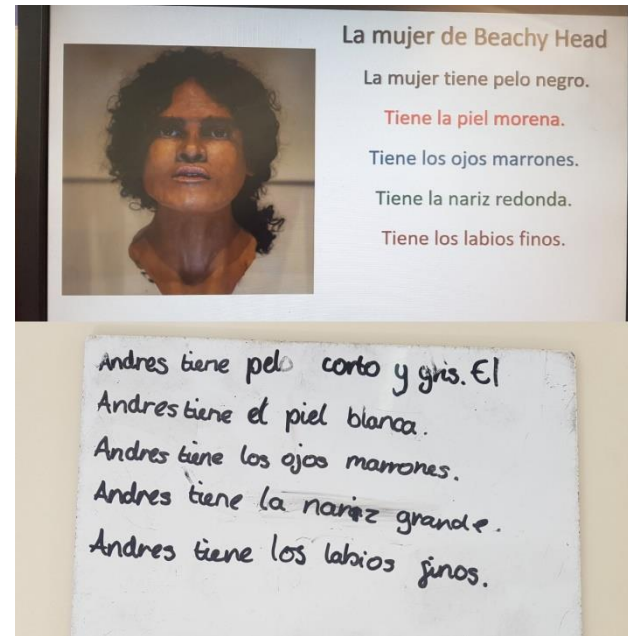 La mujer de Beachy Head
La mujer tiene pelo negro.
Tiene la piel morena.
Tiene los ojos marrones.
Tiene la nariz redonda.
Tiene los labios finos.
Andres tiene pelo corto y gris. El
Andres tiene el piel blanca.
Andres tiene los ojos marrones.
Andres tiene la nariz grande.
Andres tiene los labios finos.